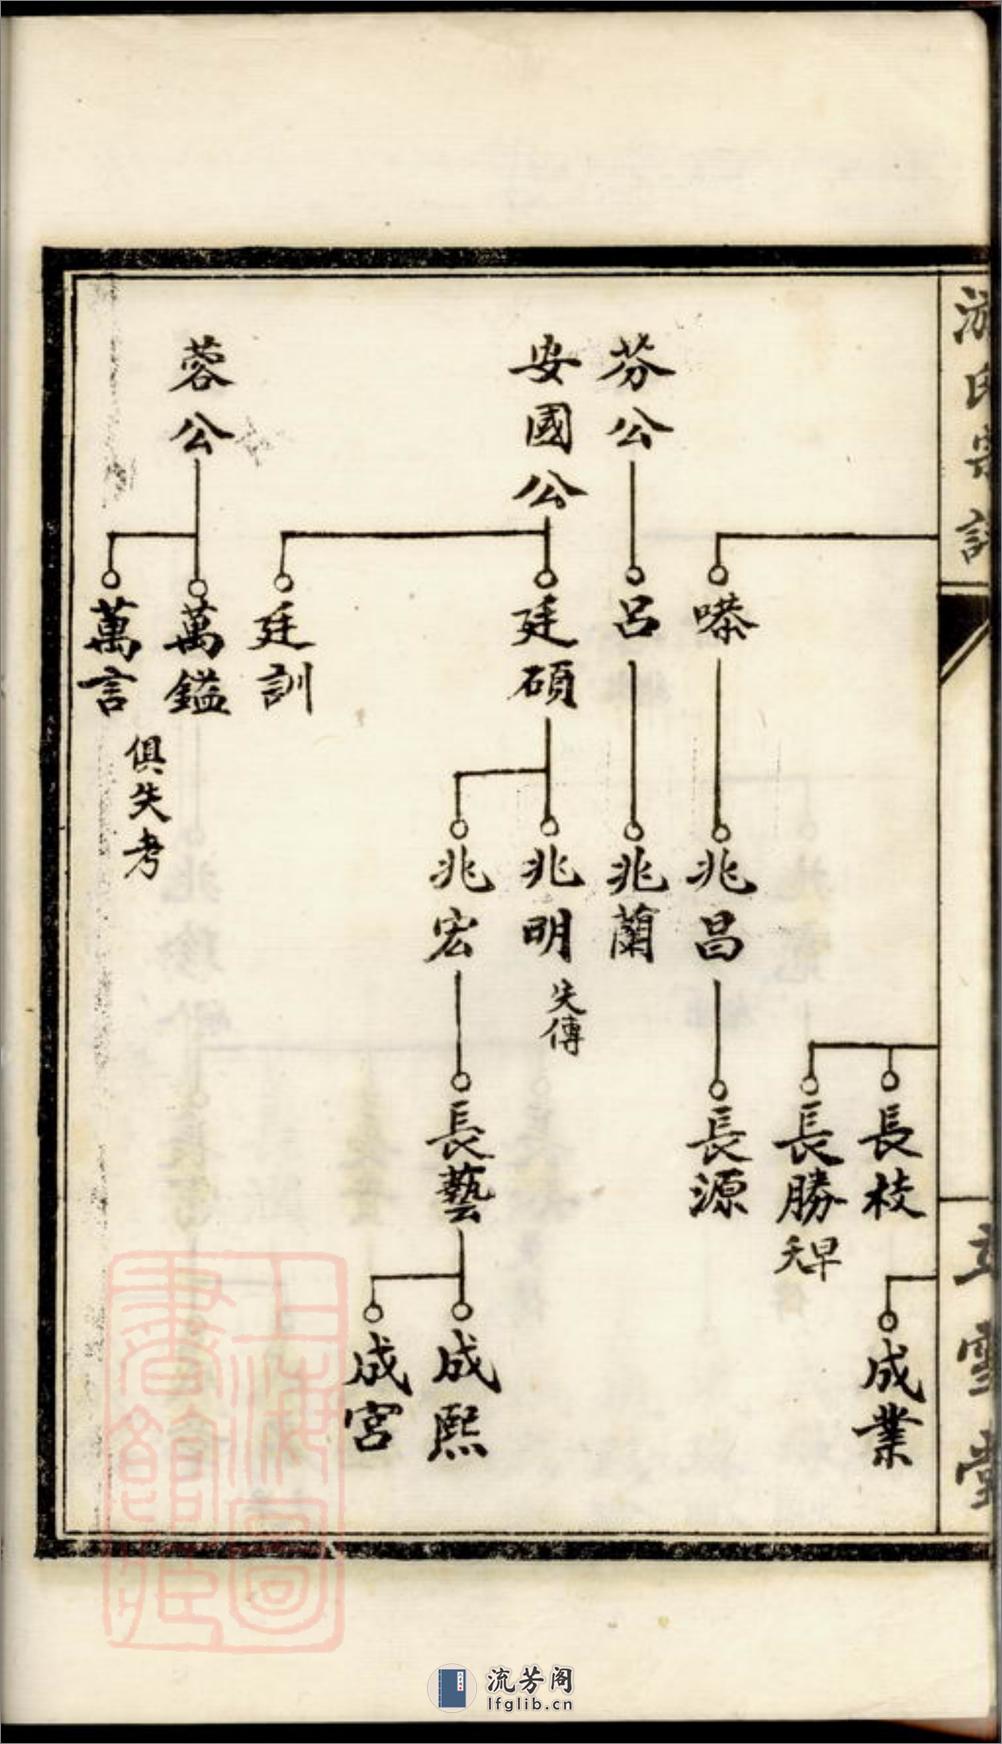 游氏宗譜
立雪堂
長枝
成業
長勝
早夭
嗏
兆昌
長源
芬公
呂
兆蘭
安國公
廷碩
兆明
失傳
兆宏
長藝
成熙
成宮
廷訓
蓉公
萬鎰
萬言
俱失考
上海圖書館藏
流芳阁
lfglib.cn